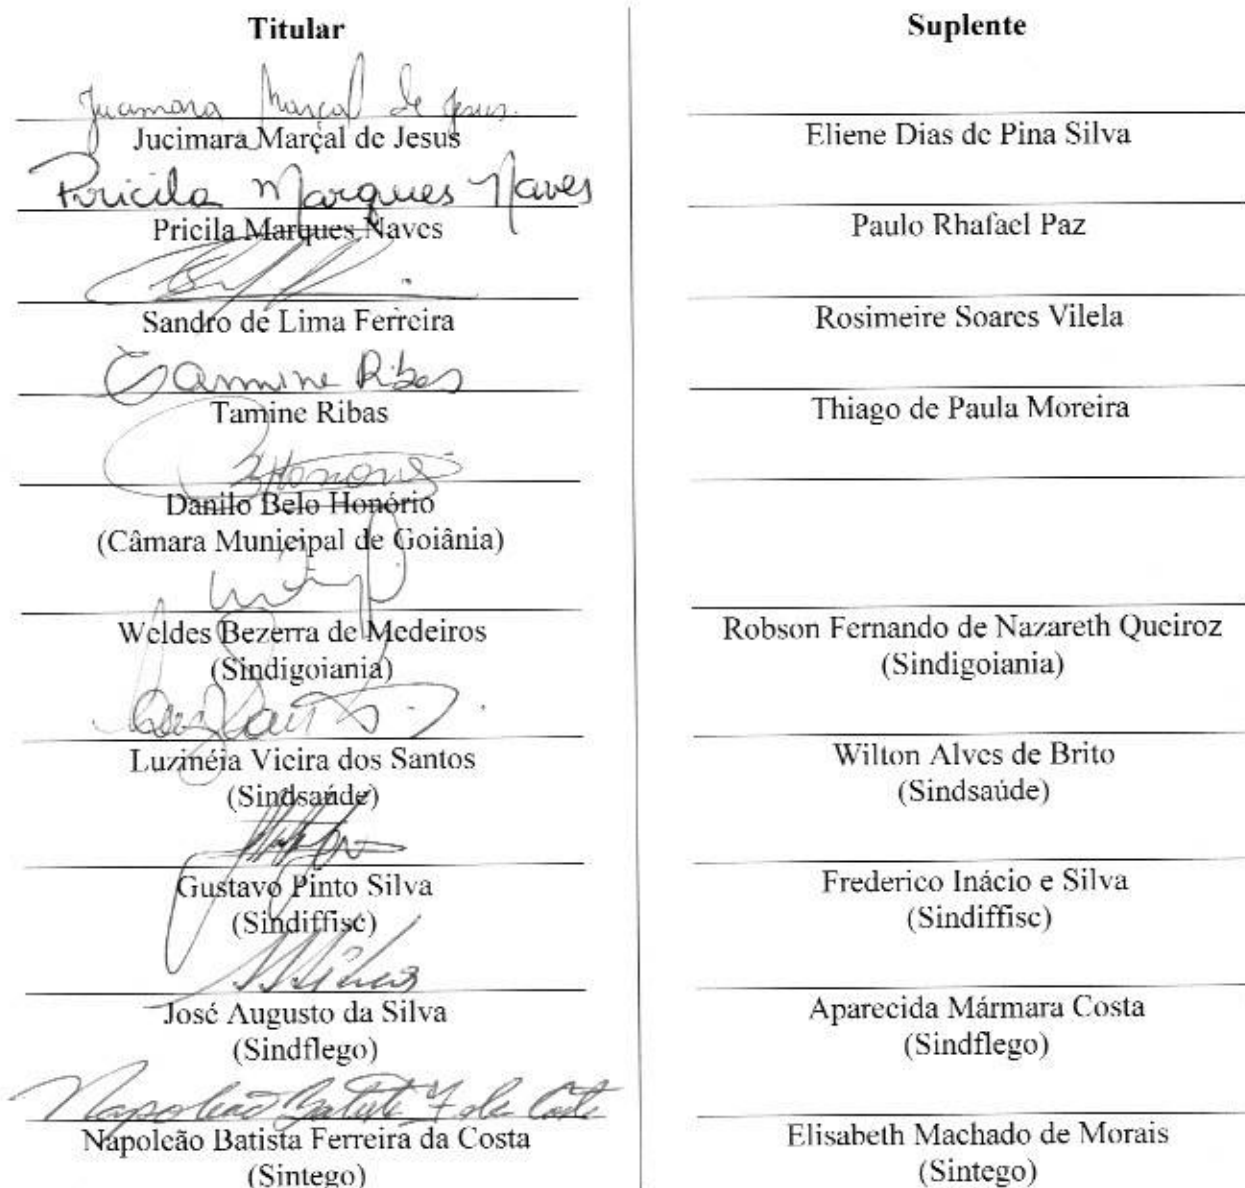 Titular
Jucimara Marçal de Jesus.
Jucimara Marçal de Jesus
Pricila Marques Naves
Pricila Marques Naves
Sandro de Lima Ferreira
Tamine Ribas
Tamine Ribas
Honório
Danilo Belo Honório
(Câmara Municipal de Goiânia)
Weldes Bezerra de Medeiros
(Sindigoiania)
Luzinéia Vieira dos Santos
(Sindsaúde)
Gustavo Pinto Silva
(Sindiffisc)
José Augusto da Silva
(Sindflego)
Napoleão Batista F da Costa
Napoleão Batista Ferreira da Costa
(Sintego)
Suplente
Eliene Dias de Pina Silva
Paulo Rhafael Paz
Rosimeire Soares Vilela
Thiago de Paula Moreira
Robson Fernando de Nazareth Queiroz
(Sindigoiania)
Wilton Alves de Brito
(Sindsaúde)
Frederico Inácio e Silva
(Sindiffisc)
Aparecida Mármara Costa
(Sindflego)
Elisabeth Machado de Morais
(Sintego)